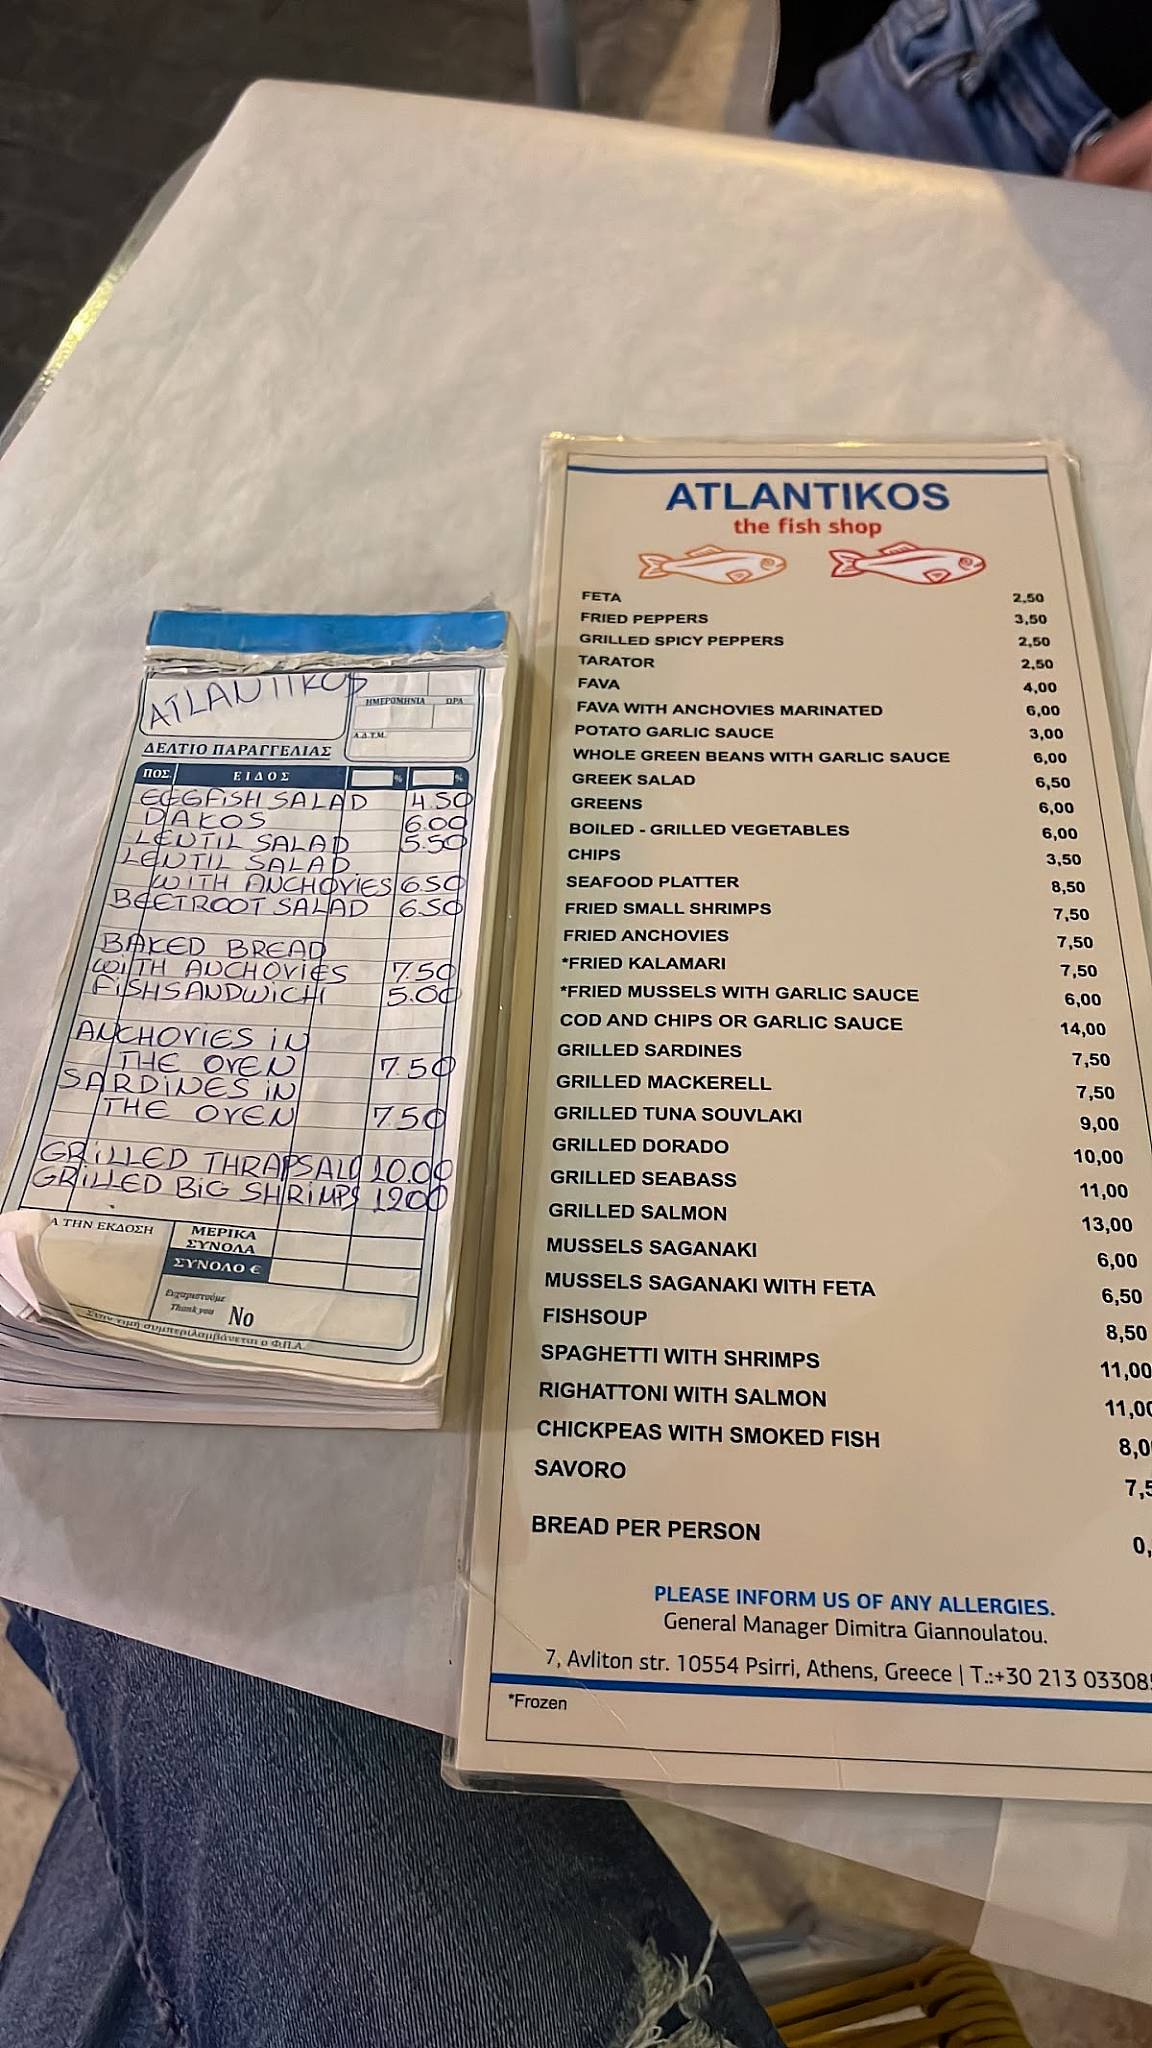 ATLANTIKOS
ΗΜΕΡΟΜΗΝΙΑ ΩΡΑ
Α.Δ.Τ.Μ.
ΔΕΛΤΙΟ ΠΑΡΑΓΓΕΛΙΑΣ
ΠΟΣ. ΕΙΔΟΣ % %
EGGFISH SALAD 4.50
DAKOS 6.00
LENTIL SALAD 5.50
LENTIL SALAD
WITH ANCHOVIES 6.50
BEETROOT SALAD 6.50
BAKED BREAD
WITH ANCHOVIES 7.50
FISHSANDWICH 5.00
ANCHOVIES IN
THE OVEN 7.50
SARDINES IN
THE OVEN 7.50
GRILLED THRAPSALO 10.00
GRILLED BIG SHRIMPS 1200
Α ΤΗΝ ΕΚΔΟΣΗ
ΜΕΡΙΚΑ
ΣΥΝΟΛΑ
ΣΥΝΟΛΟ €
Ευχαριστούμε
Thank you No
Στην τιμή συμπεριλαμβάνεται ο Φ.Π.Α.
ATLANTIKOS
the fish shop
FETA 2,50
FRIED PEPPERS 3,50
GRILLED SPICY PEPPERS 2,50
TARATOR 2,50
FAVA 4,00
FAVA WITH ANCHOVIES MARINATED 6,00
POTATO GARLIC SAUCE 3,00
WHOLE GREEN BEANS WITH GARLIC SAUCE 6,00
GREEK SALAD 6,50
GREENS 6,00
BOILED - GRILLED VEGETABLES 6,00
CHIPS 3,50
SEAFOOD PLATTER 8,50
FRIED SMALL SHRIMPS 7,50
FRIED ANCHOVIES 7,50
*FRIED KALAMARI 7,50
*FRIED MUSSELS WITH GARLIC SAUCE 6,00
COD AND CHIPS OR GARLIC SAUCE 14,00
GRILLED SARDINES 7,50
GRILLED MACKERELL 7,50
GRILLED TUNA SOUVLAKI 9,00
GRILLED DORADO 10,00
GRILLED SEABASS 11,00
GRILLED SALMON 13,00
MUSSELS SAGANAKI 6,00
MUSSELS SAGANAKI WITH FETA 6,50
FISHSOUP 8,50
SPAGHETTI WITH SHRIMPS 11,00
RIGHATTONI WITH SALMON 11,00
CHICKPEAS WITH SMOKED FISH 8,0
SAVORO 7,5
BREAD PER PERSON 0,
PLEASE INFORM US OF ANY ALLERGIES.
General Manager Dimitra Giannoulatou.
7, Avliton str. 10554 Psirri, Athens, Greece | T.:+30 213 033085
*Frozen